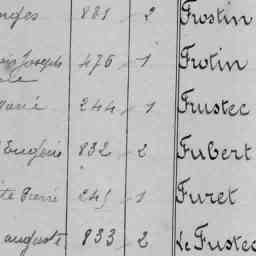 861 2 Frostin
Joseph 476 1 Frotin
244 1 Frustec
Eugénie 832 2 Fubert
Pierre 245 1 Furet
auguste 833 2 Le Fustec